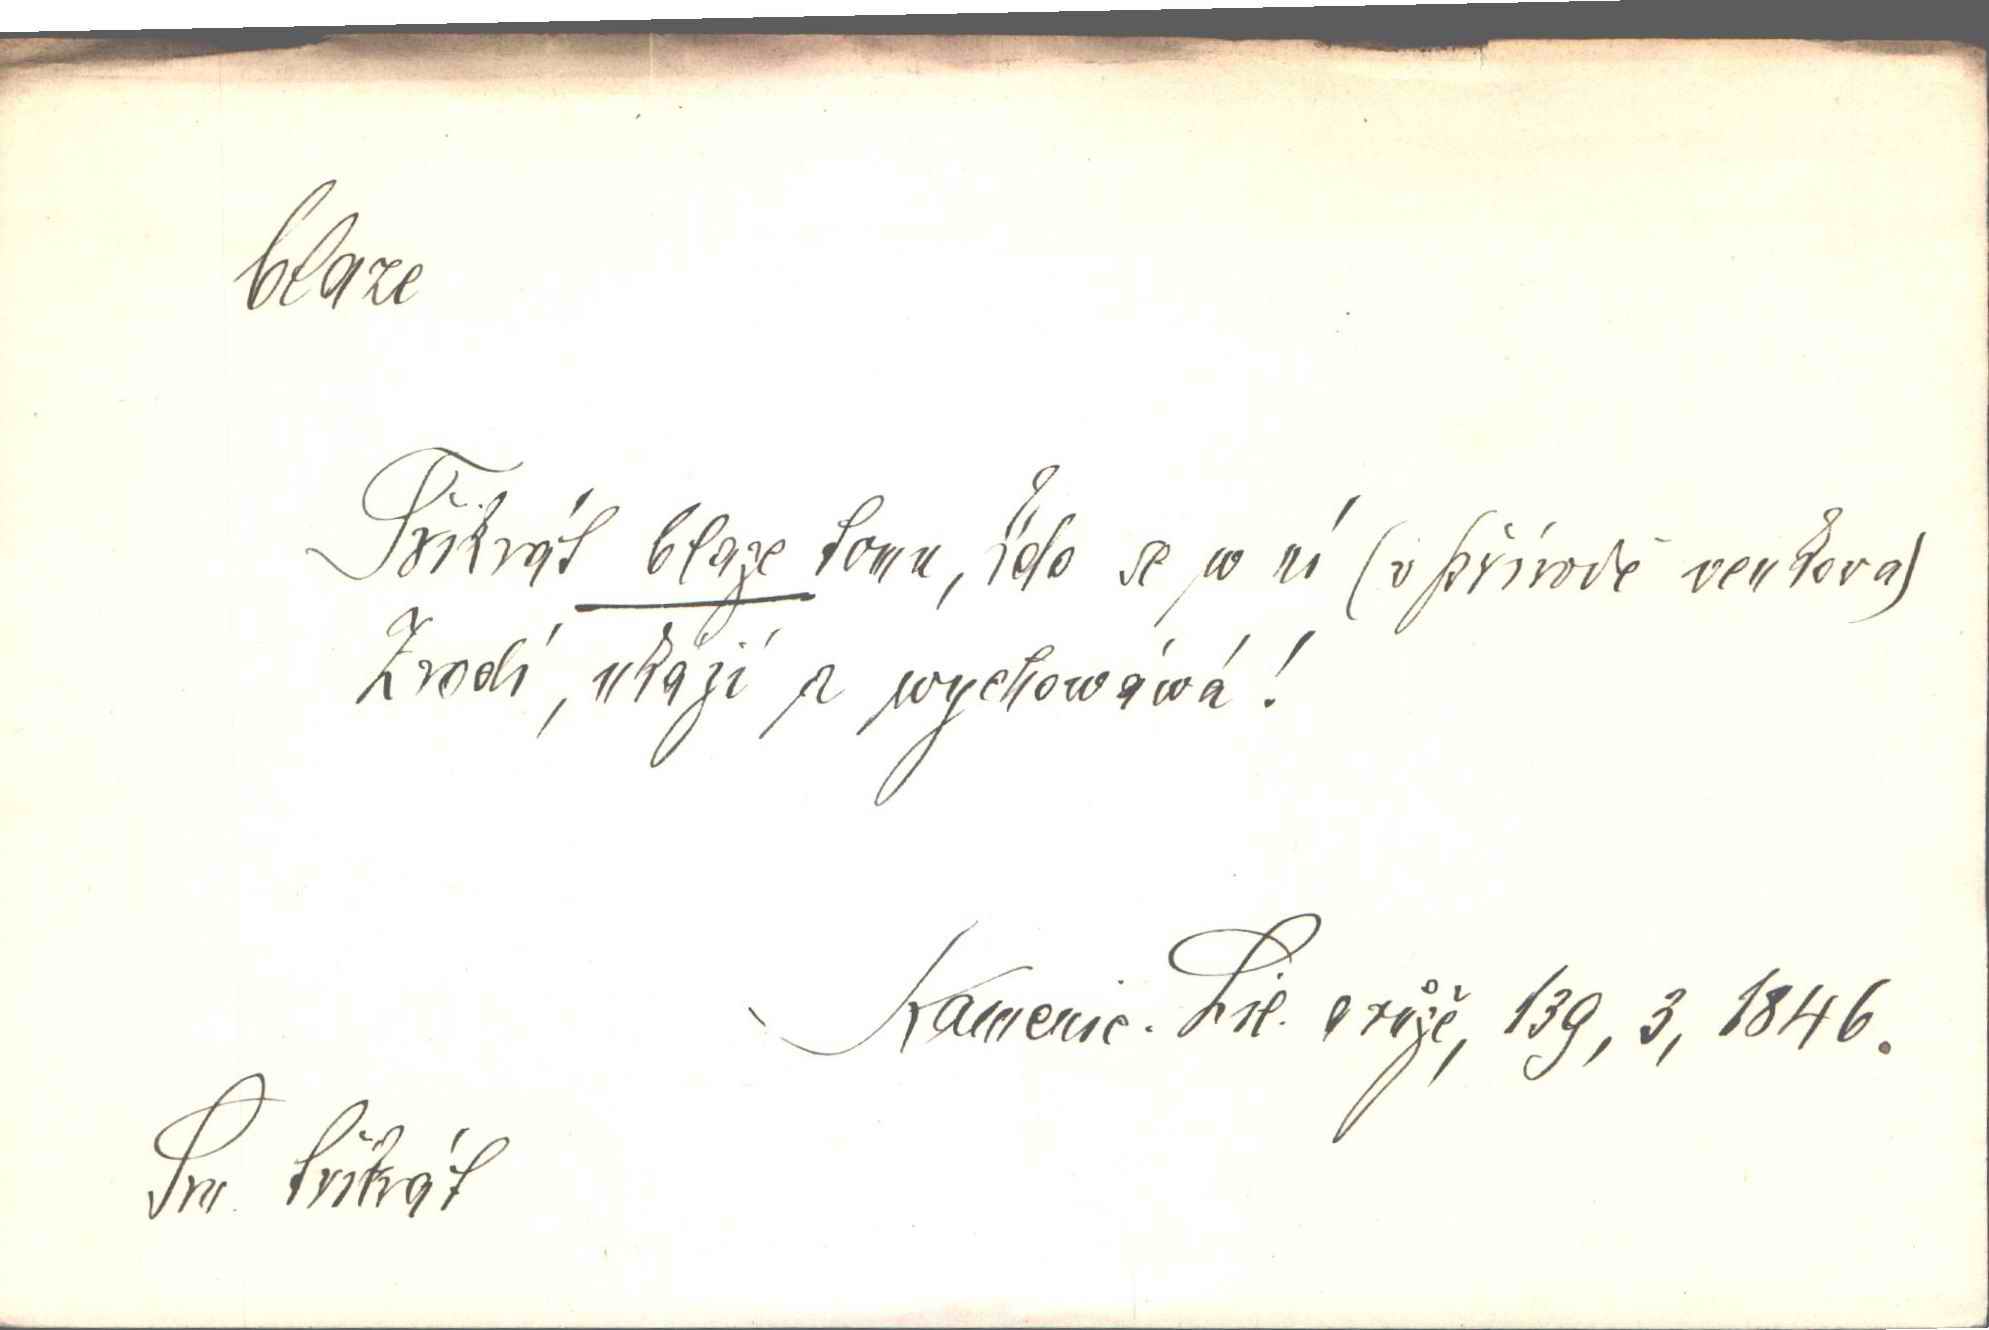 blaze
Třikrát blaze tomu, kdo se w ní (v přírodě venkova)
Zrodí, ukájí a wychowáwá!
Kamenic. Lil. a růže, 139, 3, 1846.
Sm. třikrát